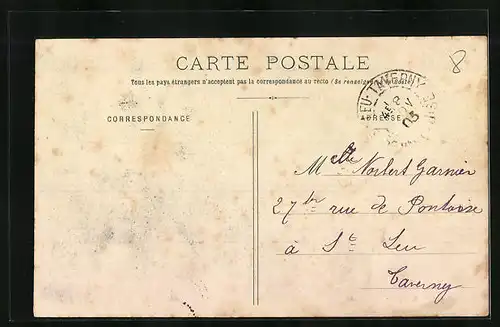 CARTE POSTALE
Tous les pays étrangers n'acceptent pas la correspondance au recto (Se renseigner à la Poste)
8
CORRESPONDANCE
ADRESSE
TAVERNY
05
Melle Norbert Garnier
27 ter rue de Pontoise
à St Leu
Taverny